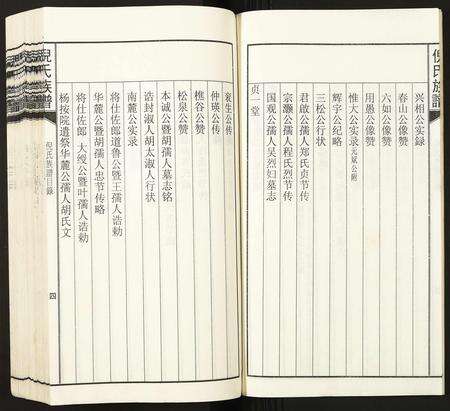 倪氏族譜
兴相公实録
春山公像赞
六如公像赞
用愚公像赞
惟大公实录元斌公附
辉宇公纪略
三松公行状
君啟公孺人郑氏贞节传
宗灏公孺人程氏烈节传
国观公孺人吴烈妇墓志
贞一堂
衮生公传
仲瑛公传
樵谷公赞
松泉公赞
本诚公暨胡孺人墓志铭
诰封淑人胡太淑人行状
南麓公实录
将仕佐郎道鲁公暨王孺人诰勅
华麓公暨胡孺人忠节传略
将仕佐郎 大绶公暨叶孺人诰勅
杨按院遣祭华麓公孺人胡氏文
倪氏族譜目録
四
倪氏族譜